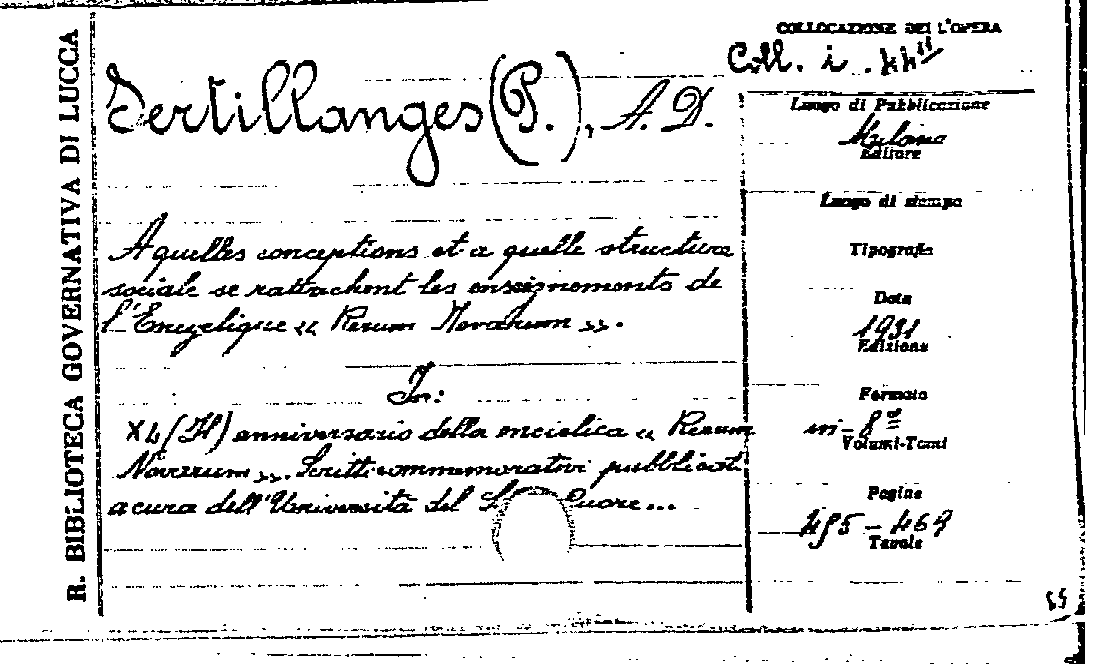 R. BIBLIOTECA GOVERNATIVA DI LUCCA
Sertillanges (P.), A. D.
A quelles conceptions et a quelle structure
sociale se rattachent les enseignements de
l'Encyclique « Rerum Novarum ».
In:
XL (Il) anniversario della enciclica « Rerum
Novarum ». Scritti commemorativi pubblicat
a cura dell'Università del S. Cuore...
COLLOCAZIONE DELL'OPERA
Coll. i.
Luogo di Pubblicazione
Milano
Editore
Luogo di stampa
Tipografia
Data
1931
Edizione
Formato
in-8º
Volumi-Tomi
Pagine
Tavole
55